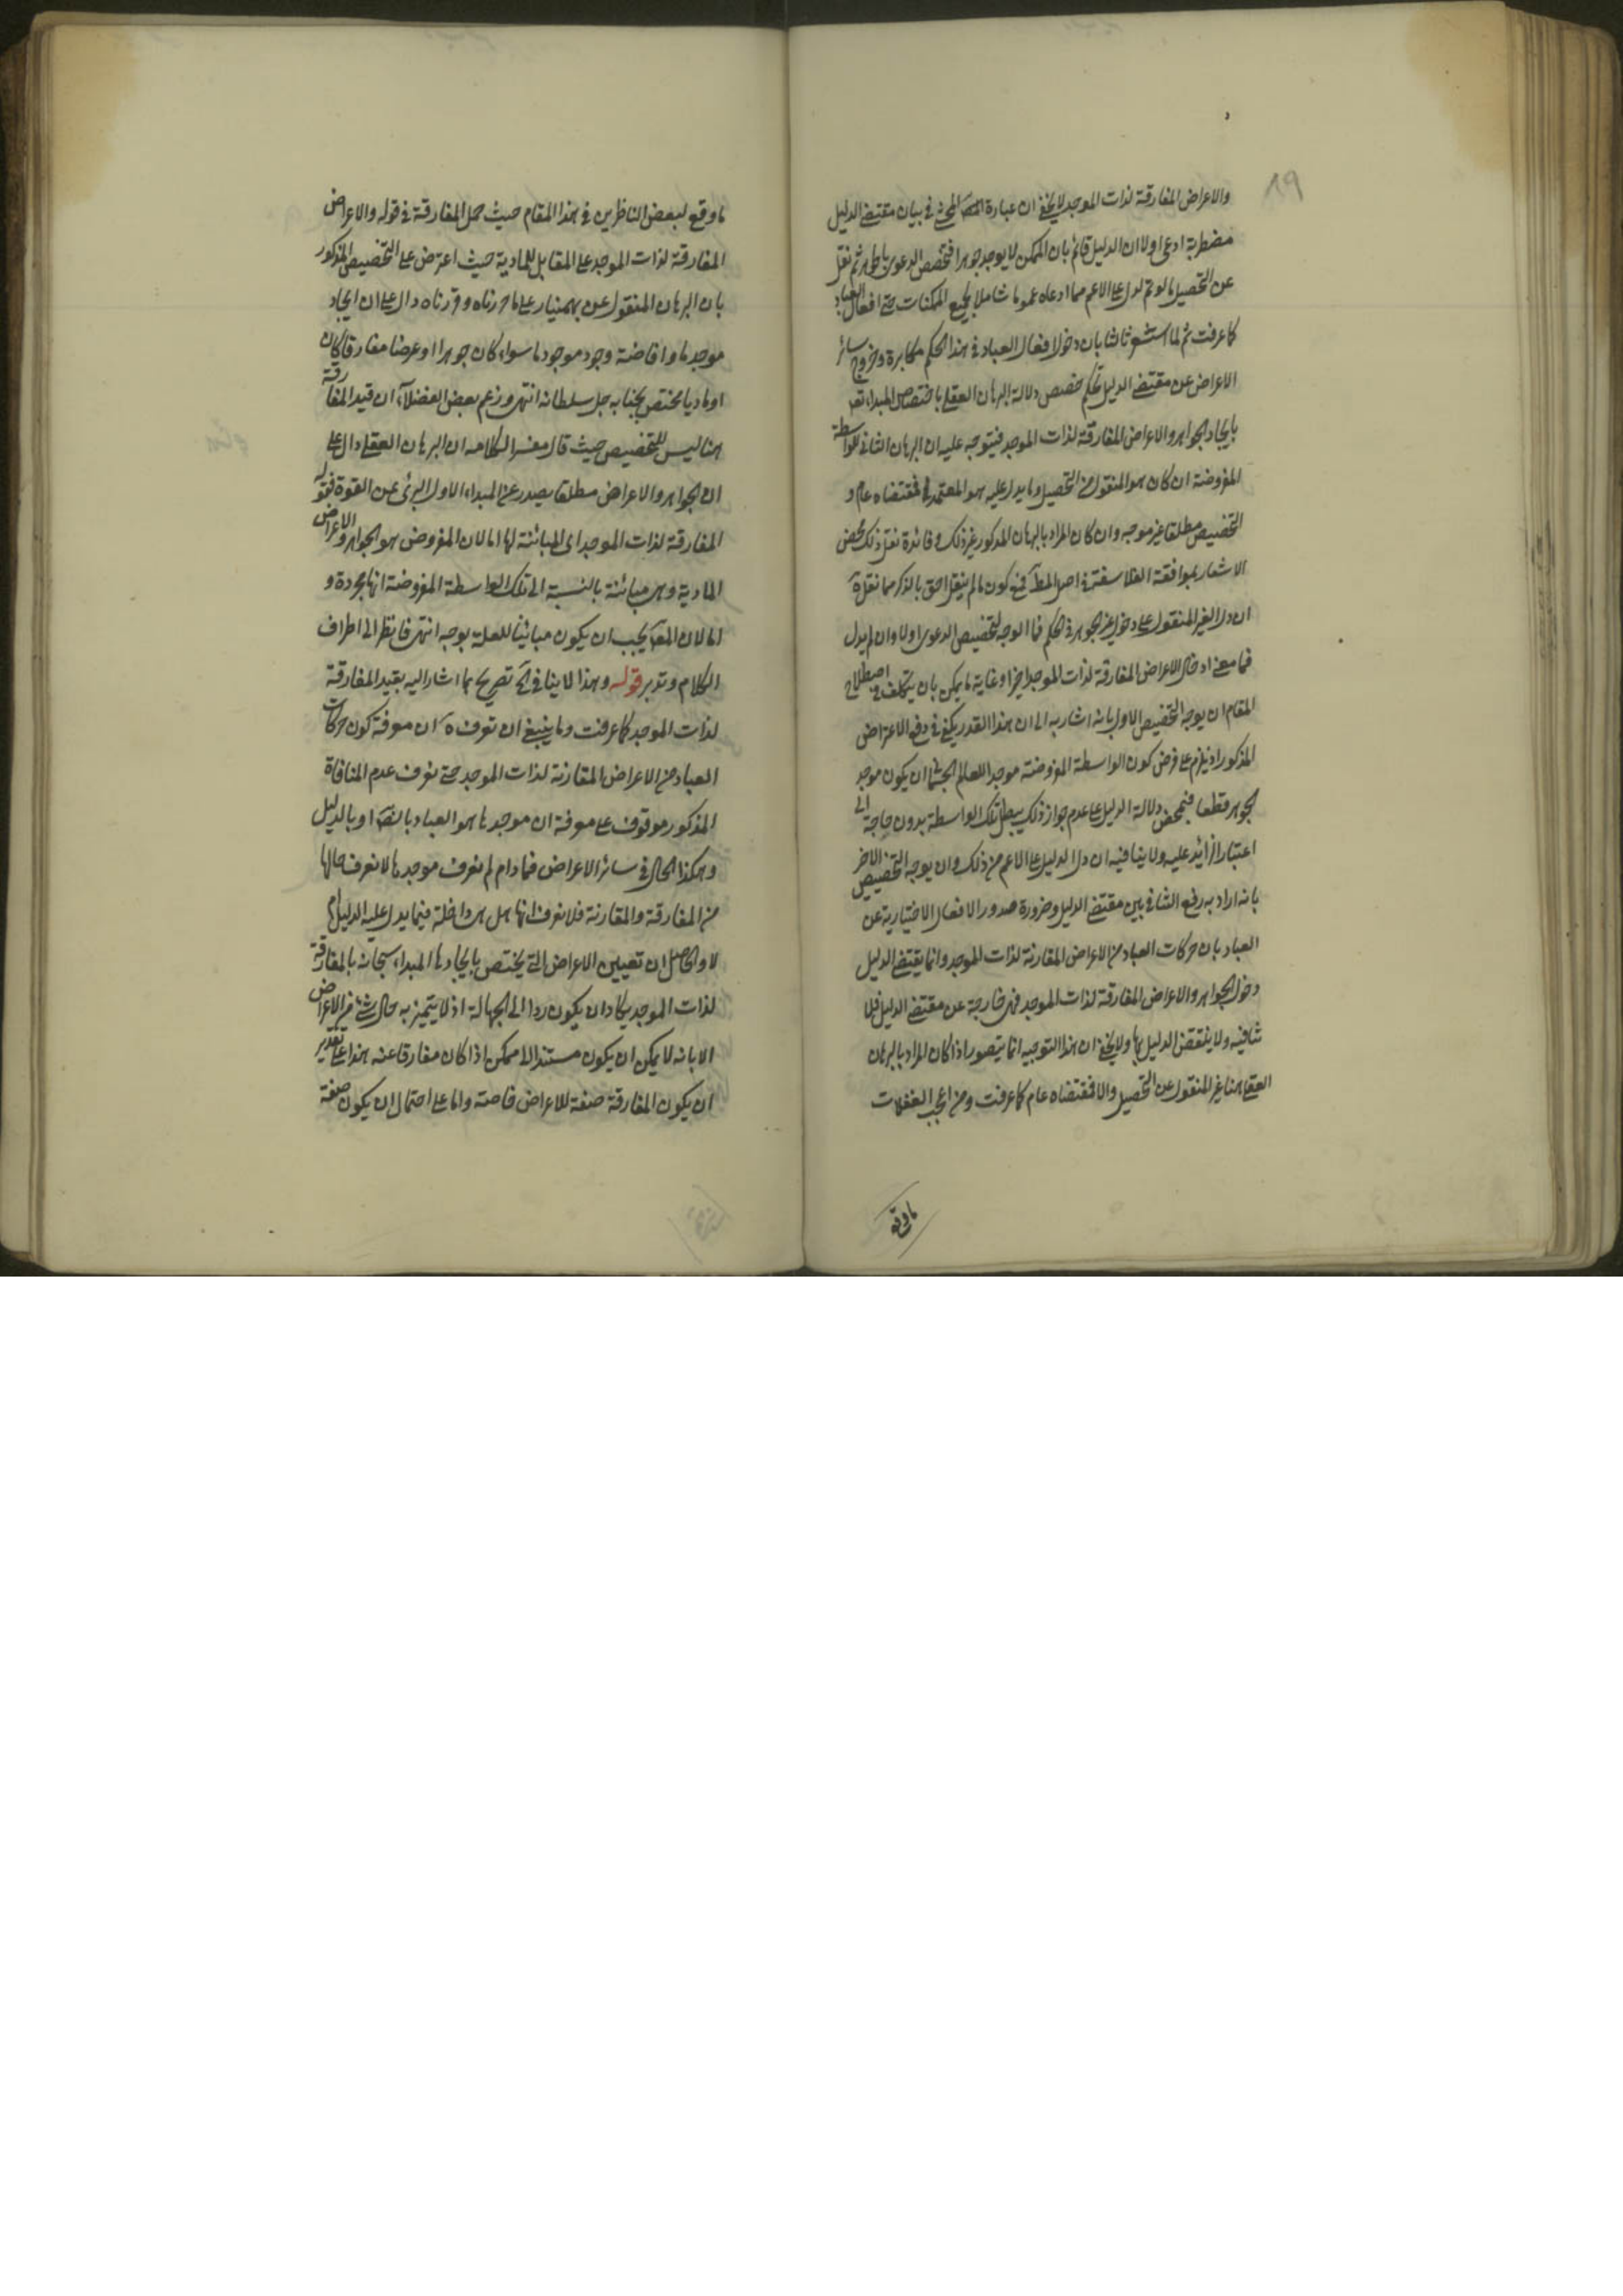 ١٩
والاعراض المفارقة لذات الموجد لا يخفى ان عبارة المص المحش في بيان مقتضى الدليل
مضطربة ادعى اولا ان الدليل قائم بان الممكن لا يوجد جوهرا فتخصص الدعوى بالجواهر ثم نقل
عن التحصيل ما لو تم لدل على الاعم مما ادعاه عموما شاملا لجميع الممكنات حتى افعال العباد
كما عرفت ثم لما استشعر ثالثا بان دخول افعال العباد في هذا الحكم مكابرة وخروج سائر
الاعراض عن مقتضى الدليل تحكم خصص دلالة البرهان العقلى باختصاص المبداء تعـ
بايجاد الجواهر والاعراض المفارقة لذات الموجد فيتوجه عليه ان البرهان الثانى للواسطة
المفروضة ان كان هو المنقول من التحصيل وما يدل عليه هو المعتمد فمقتضاه عام و
التخصيص مطلقا غير موجه وان كان المراد بالبرهان المذكور غير ذلك وفائدة نقل ذلك محض
الاشعار بموافقة الفلاسفة في اصل المطـ فمع كون ما لم ينقل احق بالذكر مما نقله
ان دل الغير المنقول على دخول غير الجوهر في الحكم فما الوجه لتخصيص الدعوى اولا وان لم يدل
فما معنى ادخال الاعراض المفارقة لذات الموجد اخيرا وغاية ما يمكن بان يتكلف في اصطلاح
المقام ان يوجه التخصيص الاول بانه اشار به الى ان هذا القدر يكفى في دفع الاعتراض
المذكور اذ يلزم على فرض كون الواسطة المفروضة موجدا للعالم الجسمانى ان يكون موجد
لجوهر قطعا فبمحض دلالة الدليل على عدم جواز ذلك يبطل تلك الواسطة بدون حاجة الى
اعتبار ازائد عليه ولا ينافيه ان دل الدليل على الاعم من ذلك وان يوجه التخصيص الاخر
بانه اراد به رفع التنافى بين مقتضى الدليل وضرورة صدور الافعال الاختيارية عن
العباد بان حركات العباد من الاعراض المقارنة لذات الموجد وانما يقتضى الدليل
دخول الجواهر والاعراض المفارقة لذات الموجد فهى خارجة عن مقتضى الدليل فلا
تنافيه ولا ينتقض الدليل بها ولا يخفى ان هذا التوجيه انما يتصور اذا كان المراد بالبرهان
العقلى هنا غير المنقول عن التحصيل والا فمقتضاه عام كما عرفت ومن اعجب الغفلات
ما وقع
ما وقع لبعض الناظرين في هذا المقام حيث حمل المفارقة في قوله والاعراض
المفارقة لذات الموجد على المقابل للمادية حيث اعترض على التخصيص المذكور
بان البرهان المنقول عن بهمنيار على ما حررناه وقررناه دال على ان ايجاد
موجد ما وافاضة وجود موجود ما سواء كان جوهرا او عرضا مفارقا كان
او ماديا مختص بجنابه جل سلطانه انتهى وزعم بعض الفضلاء ان قيد المفارقة
هنا ليس للتخصيص حيث قال مفسرا لكلامه ان البرهان العقلى دال على
ان الجواهر والاعراض مطلقا يصدر عن المبداء الاول البرئ عن القوة فقوله
المفارقة لذات الموجد اى المبائنة لها اما لان المفروض هو الجواهر والاعراض
المادية وهى مبائنة بالنسبة الى تلك الواسطة المفروضة انها مجردة و
اما لان المعـ يجب ان يكون مبائنا للعلة بوجه انتهى فانظر الى اطراف
الكلام وتدبر قوله وهذا لا ينافى آه تصريح بما اشار اليه بقيد المفارقة
لذات الموجد كما عرفت وما ينبغى ان تعرف ه ان معرفة كون حركات
العباد من الاعراض المقارنة لذات الموجد حتى يعرف عدم المنافاة
المذكور موقوف على معرفة ان موجدها هو العباد بالضـ او بالدليل
وهكذا الحال في سائر الاعراض فما دام لم نعرف موجدها لا نعرف حالها
من المفارقة والمقارنة فلا نعرف انها هل هى داخلة فيما يدل عليه الدليل ام
لا والحاصل ان تعيين الاعراض التى يختص بايجادها المبداء سبحانه بالمفارقة
لذات الموجد يكاد ان يكون ردا الى الجهالة اذ لا يتميز به حال شئ من الاعراض
الا بانه لا يمكن ان يكون مستندا الى ممكن اذا كان مفارقا عنه هذا على تقدير
ان يكون المفارقة صفة للاعراض خاصة واما على احتمال ان يكون صفة